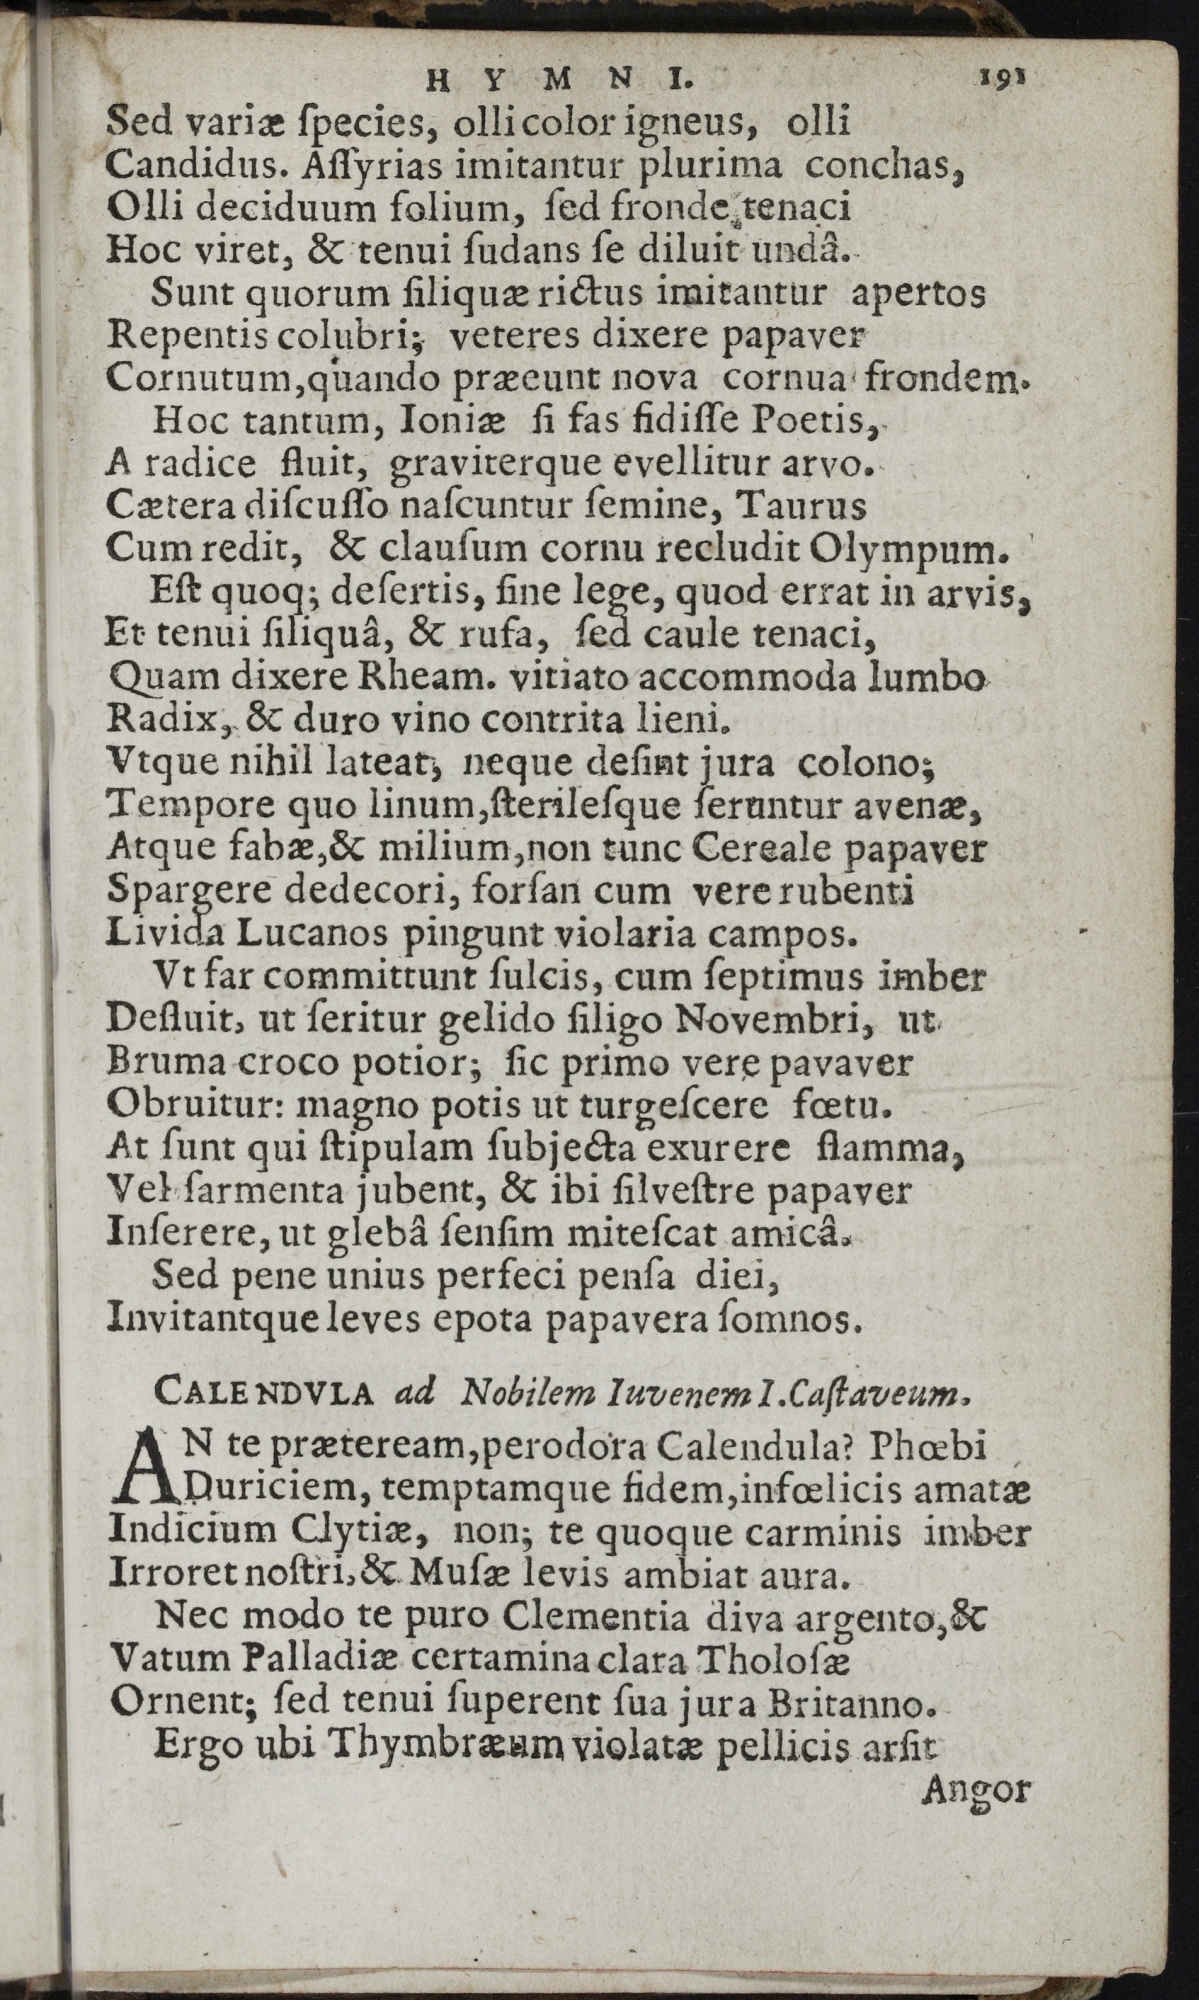 HYMNI. 191
Sed variæ ſpecies, olli color igneus, olli
Candidus. Aſſyrias imitantur plurima conchas,
Olli deciduum folium, ſed fronde tenaci
Hoc viret, & tenui ſudans ſe diluit undâ.
Sunt quorum ſiliquæ rictus imitantur apertos
Repentis colubri; veteres dixere papaver
Cornutum, quando præeunt nova cornua frondem.
Hoc tantum, Ioniæ ſi fas fidiſſe Poetis,
A radice fluit, graviterque evellitur arvo.
Cætera diſcuſſo naſcuntur ſemine, Taurus
Cum redit, & clauſum cornu recludit Olympum.
Eſt quoq; deſertis, ſine lege, quod errat in arvis,
Et tenui ſiliquâ, & rufa, ſed caule tenaci,
Quam dixere Rheam. vitiato accommoda lumbo
Radix, & duro vino contrita lieni.
Vtque nihil lateat, neque deſint jura colono;
Tempore quo linum, ſterileſque ſeruntur avenæ,
Atque fabæ, & milium, non tunc Cereale papaver
Spargere dedecori, forſan cum vere rubenti
Livida Lucanos pingunt violaria campos.
Vt far committunt ſulcis, cum ſeptimus imber
Defluit, ut ſeritur gelido ſiligo Novembri, ut
Bruma croco potior; ſic primo vere pavaver
Obruitur: magno potis ut turgeſcere fœtu.
At ſunt qui ſtipulam ſubjecta exurere flamma,
Vel ſarmenta jubent, & ibi ſilveſtre papaver
Inſerere, ut glebâ ſenſim miteſcat amicâ.
Sed pene unius perfeci penſa diei,
Invitantque leves epota papavera ſomnos.
CALENDVLA ad Nobilem Iuvenem I. Caſtaveum.
AN te prætereram, perodora Calendula? Phœbi
Duriciem, temptamque fidem, infœlicis amatæ
Indicium Clytiæ, non; te quoque carminis imber
Irroret noſtri, & Muſæ levis ambiat aura.
Nec modo te puro Clementia diva argento, &
Vatum Palladiæ certamina clara Tholoſæ
Ornent; ſed tenui ſuperent ſua jura Britanno.
Ergo ubi Thymbræum violatæ pellicis arſit
Angor